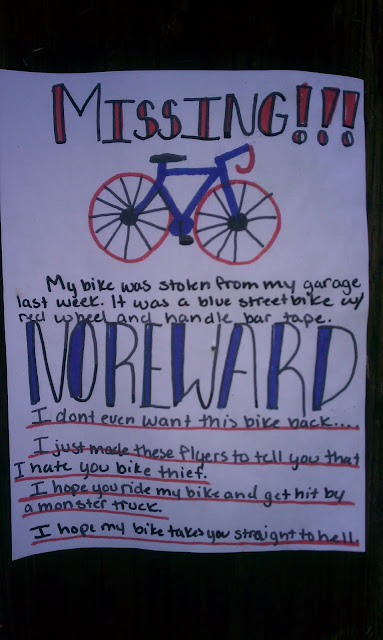 MISSING!!!
My bike was stolen from my garage
last week. It was a blue streetbike w/
red wheel and handle bar tape.
NO REWARD
I dont even want this bike back....
I just made these flyers to tell you that
I hate you bike thief.
I hope you ride my bike and get hit by
a monster truck.
I hope my bike takes you straight to hell.